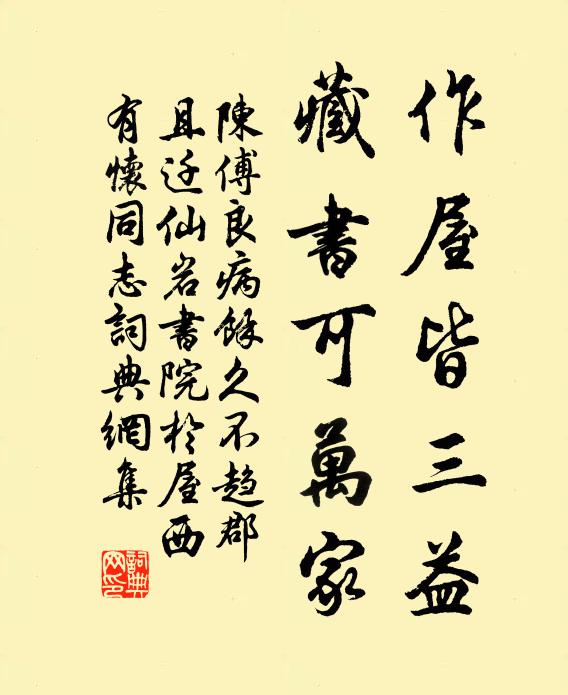 作屋皆三益
藏書可萬家
陳傅良病餘久不趨郡
且迁仙岩書院於屋西
有懷同志詞典網集
詞典網印